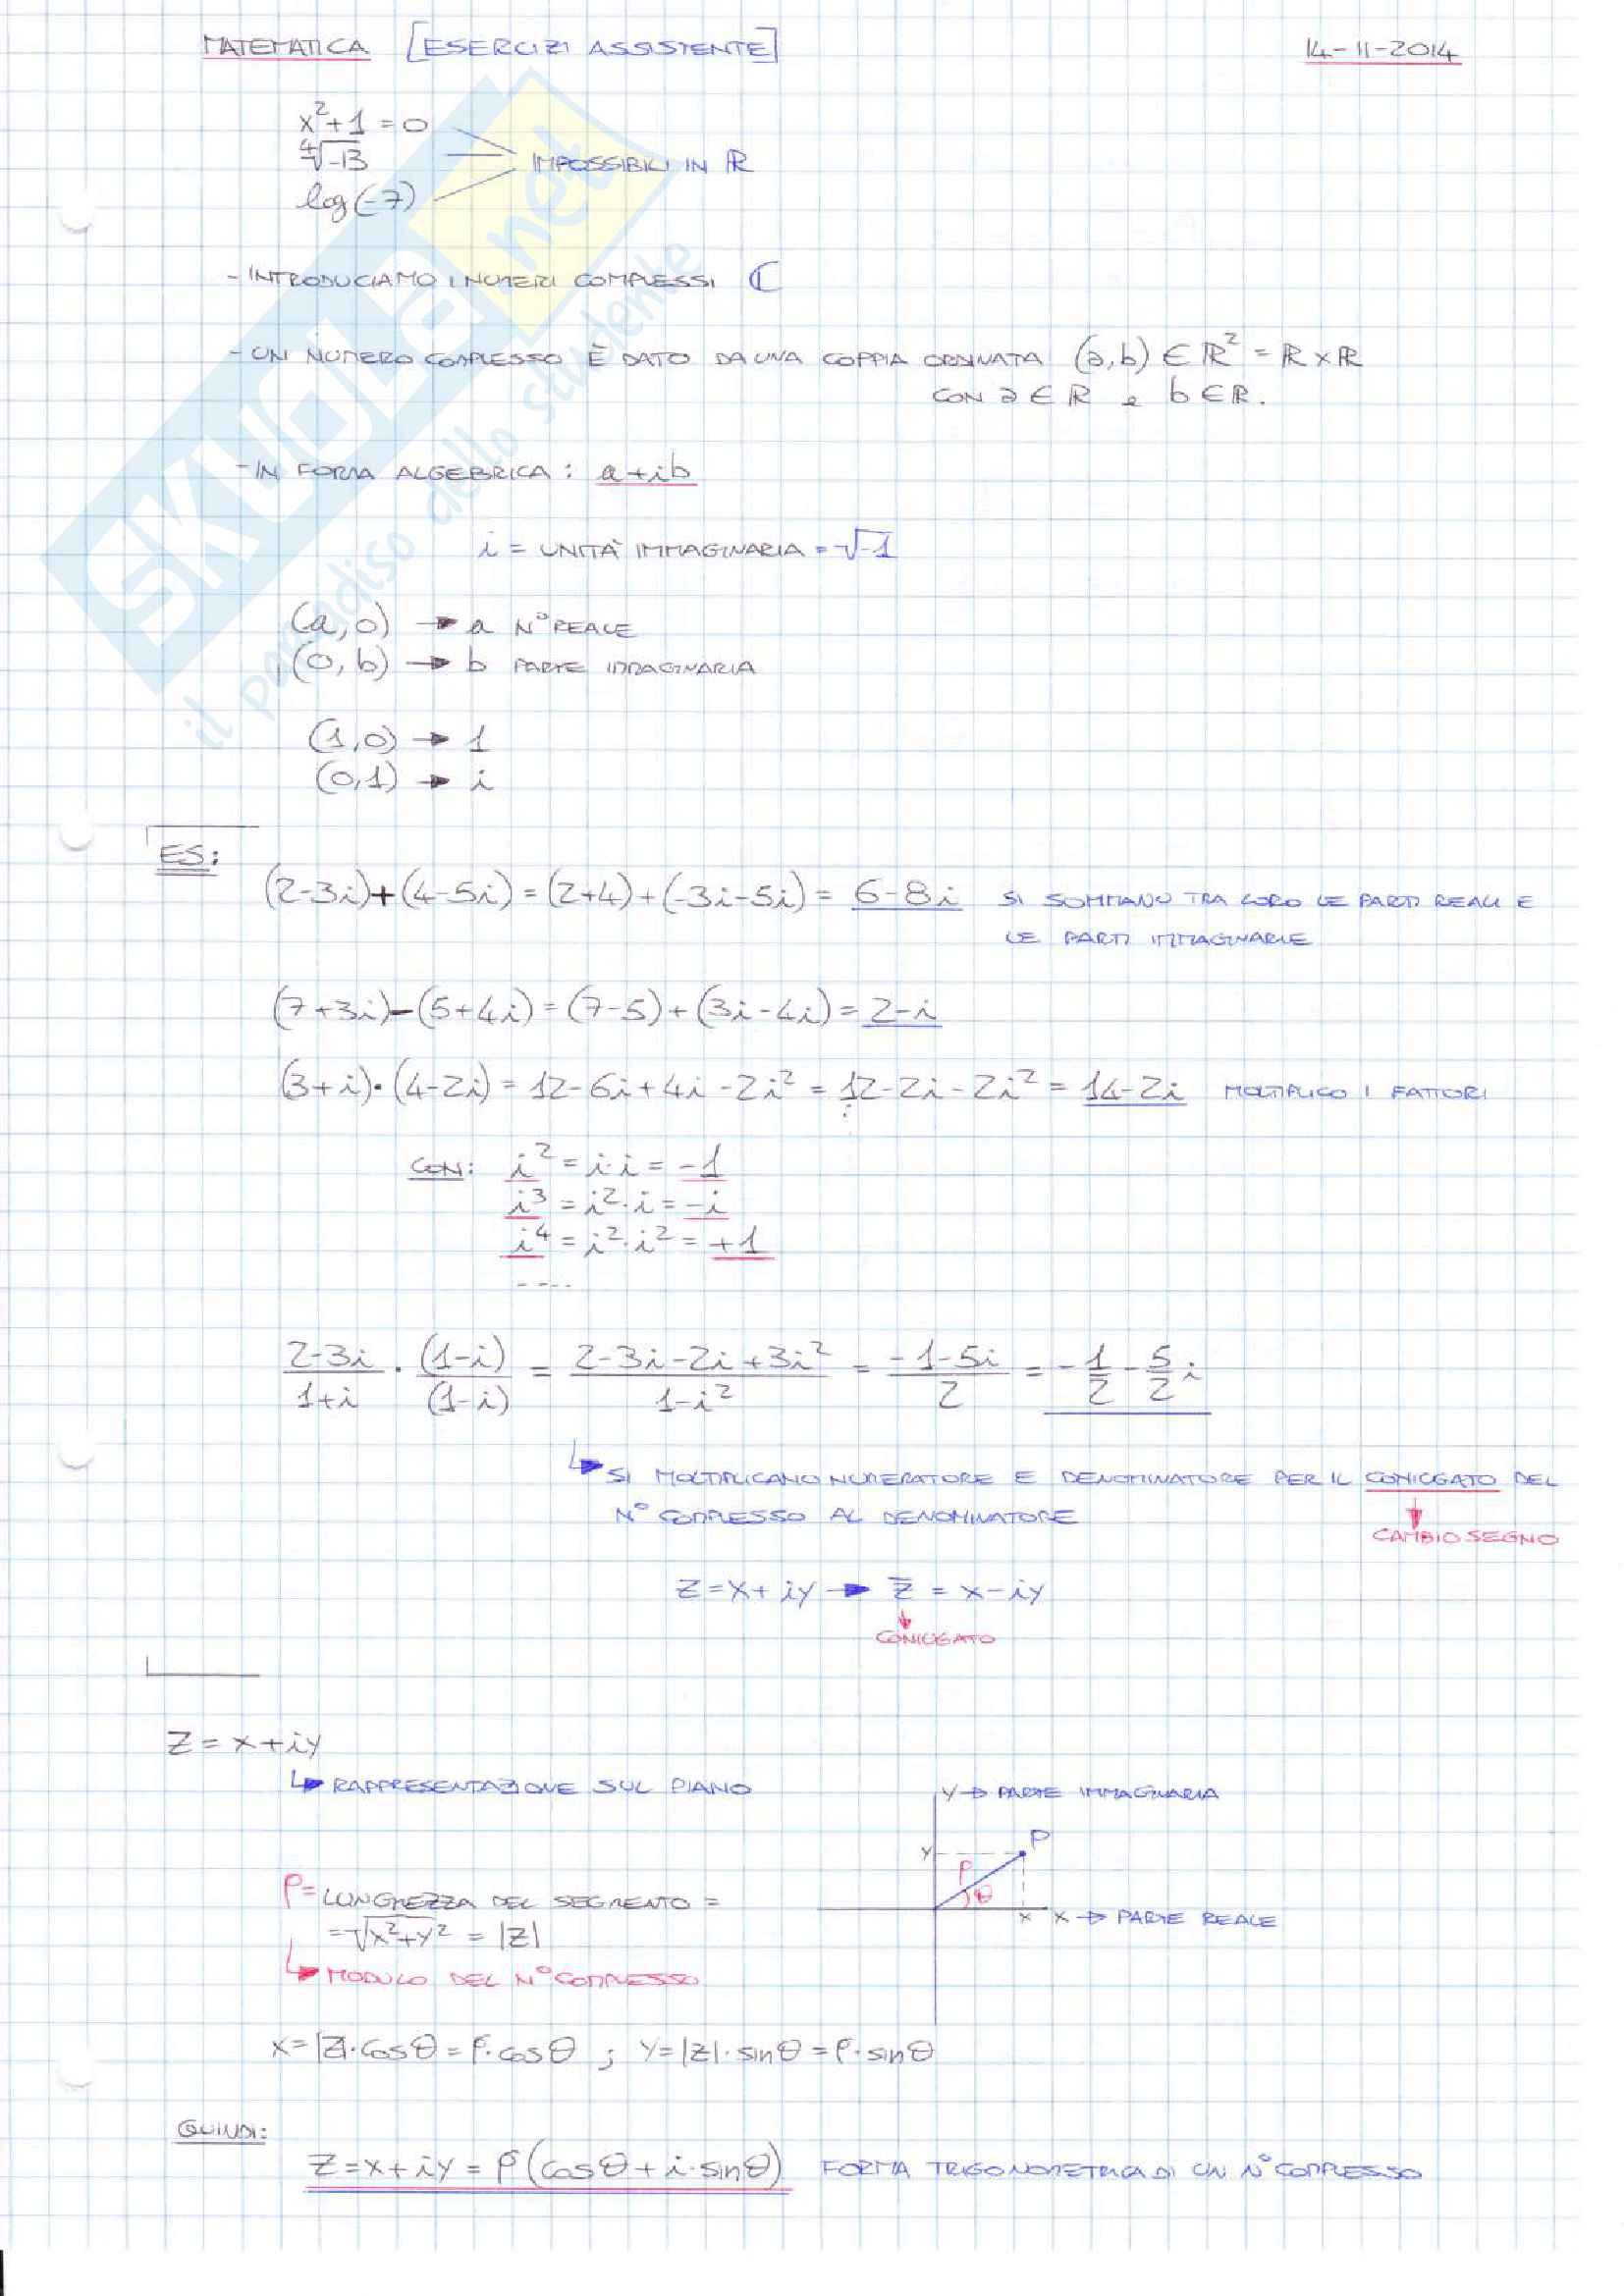 MATEMATICA [ESERCIZI ASSISTENTE] 14-11-2014
x²+1=0
⁴√-13 IMPOSSIBILI IN ℝ
log(-7)
-INTRODUCIAMO I NUMERI COMPLESSI ℂ
-UN NUMERO COMPLESSO È DATO DA UNA COPPIA ORDINATA (a,b) ∈ ℝ² = ℝ×ℝ
CON a ∈ ℝ e b ∈ ℝ.
-IN FORMA ALGEBRICA: a+ib
i = UNITÀ IMMAGINARIA = √-1
(a,0) → a N° REALE
(0,b) → b PARTE IMMAGINARIA
(1,0) → 1
(0,1) → i
ES:
(2-3i)+(4-5i) = (2+4)+(-3i-5i) = 6-8i SI SOMMANO TRA LORO LE PARTI REALI E
LE PARTI IMMAGINARIE
(7+3i)-(5+4i) = (7-5)+(3i-4i) = 2-i
(3+i)·(4-2i) = 12-6i+4i-2i² = 12-2i-2i² = 14-2i MOLTIPLICO I FATTORI
CON: i² = i·i = -1
i³ = i²·i = -i
i⁴ = i²·i² = +1
....
(2-3i)/(1+i) · (1-i)/(1-i) = (2-3i-2i+3i²)/(1-i²) = (-1-5i)/2 = -1/2 - 5/2 i
↳ SI MOLTIPLICANO NUMERATORE E DENOMINATORE PER IL CONIUGATO DEL
N° COMPLESSO AL DENOMINATORE
CAMBIO SEGNO
Z=X+iY → Z̄ = X-iY
CONIUGATO
Z = X+iY
↳ RAPPRESENTAZIONE SUL PIANO
Y → PARTE IMMAGINARIA
Y P
ρ θ
X X → PARTE REALE
ρ = LUNGHEZZA DEL SEGMENTO =
= √X²+Y² = |Z|
↳ MODULO DEL N° COMPLESSO
X=|Z|·cosθ = ρ·cosθ ; Y=|Z|·sinθ = ρ·sinθ
QUINDI:
Z=X+iY = ρ(cosθ+i·sinθ) FORMA TRIGONOMETRICA DI UN N° COMPLESSO
SKUOLA.net
il paradiso dello studente